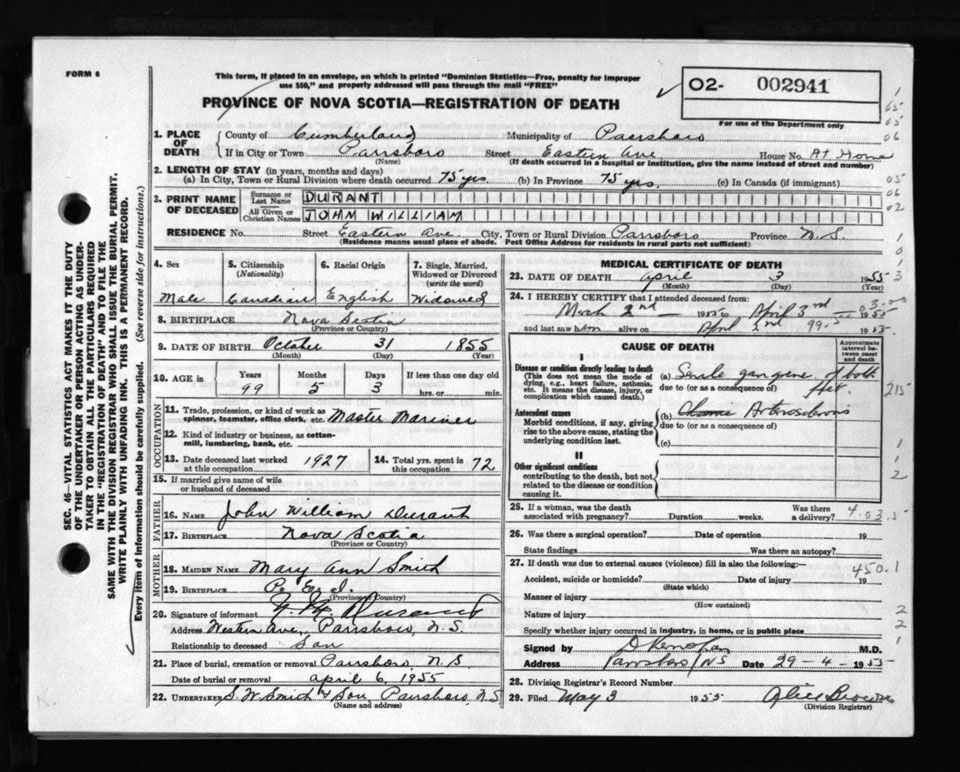 FORM 6
This form, if placed in an envelope, on which is printed "Dominion Statistics—Free, penalty for improper
use $50," and properly addressed will pass through the mail "FREE"
PROVINCE OF NOVA SCOTIA—REGISTRATION OF DEATH
O2- 002941
For use of the Department only
1. PLACE OF DEATH County of Cumberland Municipality of Parrsboro
If in City or Town Parrsboro Street Eastern Ave House No. At Home
(Name) (If death occurred in a hospital or institution, give the name instead of street and number)
2. LENGTH OF STAY (in years, months and days)
(a) In City, Town or Rural Division where death occurred 75 yrs (b) In Province 75 yrs. (c) In Canada (if immigrant)
3. PRINT NAME OF DECEASED Surname or Last Name DURANT
All Given or Christian Names JOHN WILLIAM
RESIDENCE No. Street Eastern Ave. City, Town or Rural Division Parrsboro Province N.S.
(Residence means usual place of abode. Post Office Address for residents in rural parts not sufficient)
4. Sex Male
5. Citizenship (Nationality) Canadian
6. Racial Origin English
7. Single, Married, Widowed or Divorced (write the word) Widowed
8. BIRTHPLACE Nova Scotia
(Province or Country)
9. DATE OF BIRTH October 31 1855
(Month) (Day) (Year)
10. AGE in Years 99 Months 5 Days 3 If less than one day old hrs. or min.
OCCUPATION
11. Trade, profession, or kind of work as spinner, teamster, office clerk, etc. Master Mariner
12. Kind of industry or business, as cotton-mill, lumbering, bank, etc.
13. Date deceased last worked at this occupation 1927
14. Total yrs. spent in this occupation 72
15. If married give name of wife or husband of deceased
FATHER
16. NAME John William Durant
17. BIRTHPLACE Nova Scotia
(Province or Country)
MOTHER
18. MAIDEN NAME Mary Ann Smith
19. BIRTHPLACE P. E. I.
(Province or Country)
20. Signature of informant Durant
Address Western Ave, Parrsboro, N.S.
Relationship to deceased Son
21. Place of burial, cremation or removal Parrsboro, N.S.
Date of burial or removal april 6, 1955
22. UNDERTAKER S. W. Smith & Son, Parrsboro, N.S
(Name and address)
MEDICAL CERTIFICATE OF DEATH
23. DATE OF DEATH April 3 1955
(Month) (Day) (Year)
24. I HEREBY CERTIFY that I attended deceased from
March 2nd 1955 to April 3rd 1955
and last saw him alive on April 2nd 1955.
CAUSE OF DEATH
Approximate interval between onset and death
I
Disease or condition directly leading to death
(This does not mean the mode of dying, e.g., heart failure, asthenia, etc. It means the disease, injury, or complication which caused death.)
(a) Senile gangrene of both feet
due to (or as a consequence of)
Antecedent causes
Morbid conditions, if any, giving rise to the above cause, stating the underlying condition last.
(b) Chronic Arteriosclerosis
due to (or as a consequence of)
(c)
II
Other significant conditions
contributing to the death, but not related to the disease or condition causing it.
25. If a woman, was the death associated with pregnancy? Duration weeks. Was there a delivery?
26. Was there a surgical operation? Date of operation 19
State findings Was there an autopsy?
27. If death was due to external causes (violence) fill in also the following:—
450.1
Accident, suicide or homicide? Date of injury 19
(State which)
Manner of injury
(How sustained)
Nature of injury
Specify whether injury occurred in industry, in home, or in public place
Signed by M.D.
Address Parrsboro NS Date 29-4-1955
28. Division Registrar's Record Number
29. Filed May 3 1955 Alice Browne
(Division Registrar)
SEC. 46—VITAL STATISTICS ACT MAKES IT THE DUTY
OF THE UNDERTAKER OR PERSON ACTING AS UNDER-
TAKER TO OBTAIN ALL THE PARTICULARS REQUIRED
IN THE "REGISTRATION OF DEATH" AND TO FILE THE
SAME WITH THE DIVISION REGISTRAR WHO SHALL ISSUE THE BURIAL PERMIT.
WRITE PLAINLY WITH UNFADING INK. THIS IS A PERMANENT RECORD.
Every item of Information should be carefully supplied. (See reverse side for instructions.)